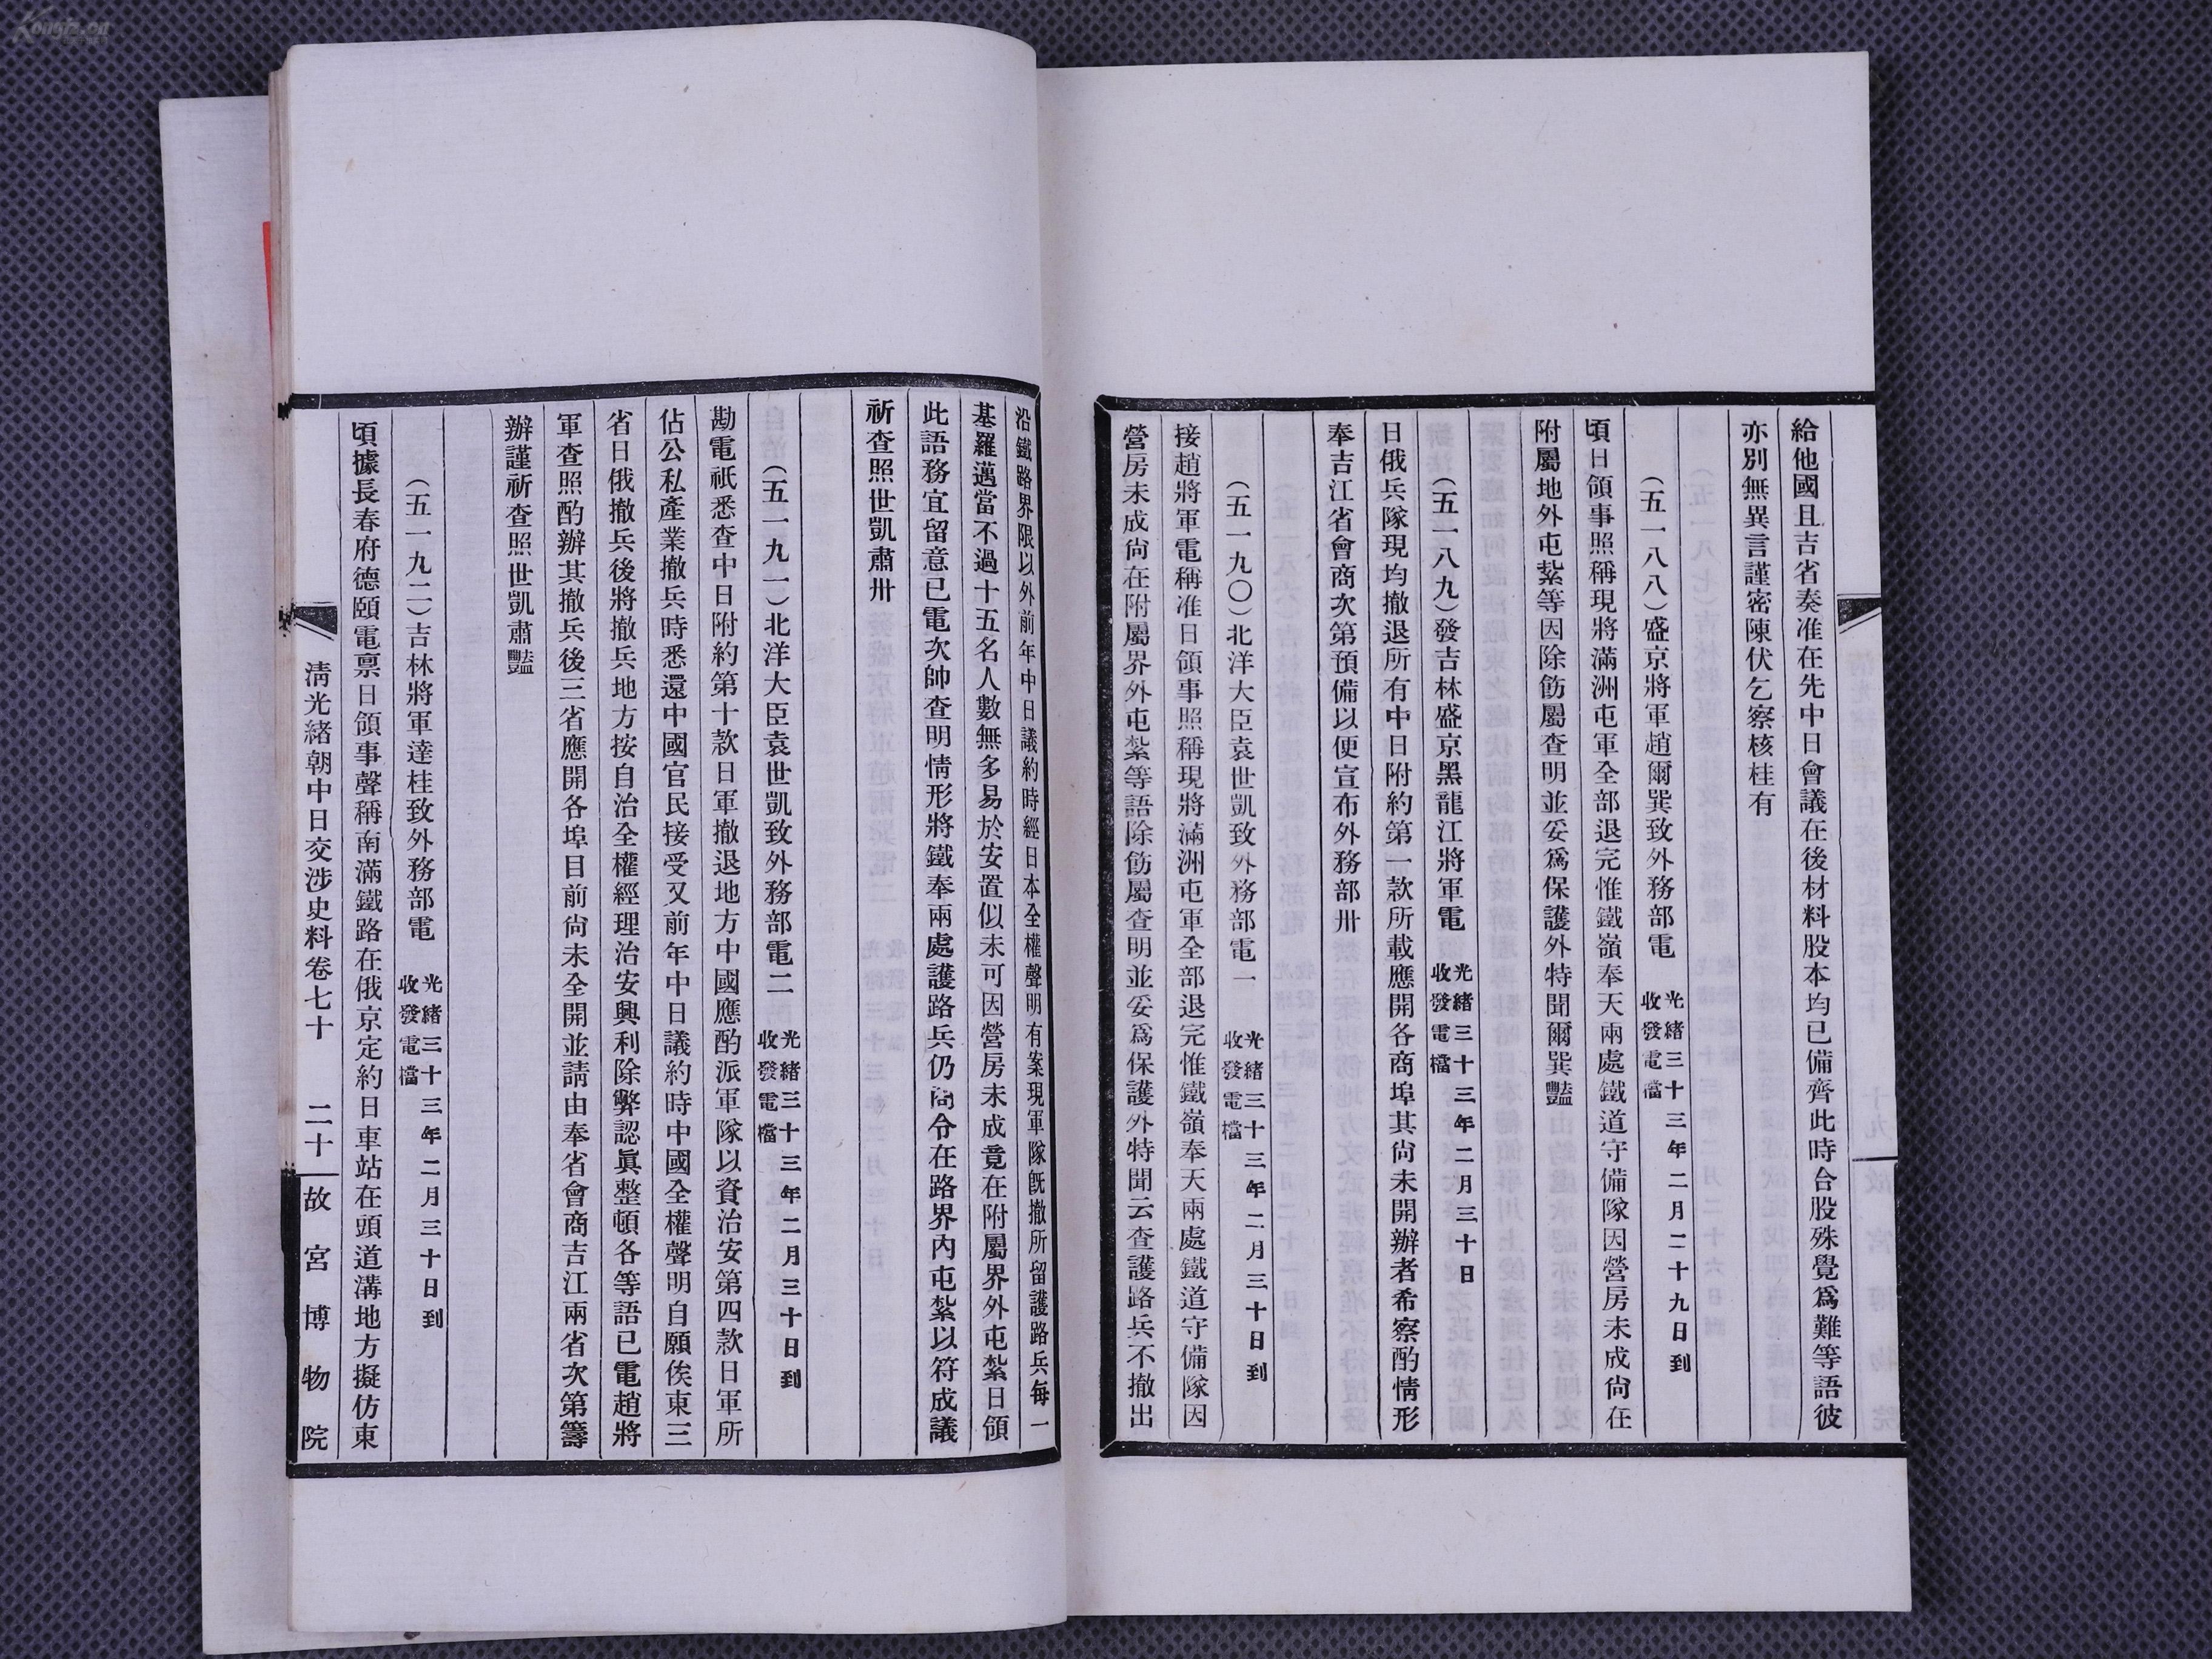 給他國且吉省奏准在先中日會議在後材料股本均已備齊此時合股殊覺爲難等語彼
亦別無異言謹密陳伏乞察核桂有
(五一八八)盛京將軍趙爾巽致外務部電 光緒三十三年二月二十九日到
收發電檔
頃日領事照稱現將滿洲屯軍全部退完惟鐵嶺奉天兩處鐵道守備隊因營房未成尙在
附屬地外屯紮等因除飭屬查明並妥爲保護外特聞爾巽豔
(五一八九)發吉林盛京黑龍江將軍電 光緒三十三年二月三十日
收發電檔
日俄兵隊現均撤退所有中日附約第一款所載應開各商埠其尙未開辦者希察酌情形
奉吉江省會商次第預備以便宣布外務部卅
(五一九〇)北洋大臣袁世凱致外務部電一 光緒三十三年二月三十日到
收發電檔
接趙將軍電稱准日領事照稱現將滿洲屯軍全部退完惟鐵嶺奉天兩處鐵道守備隊因
營房未成尙在附屬界外屯紮等語除飭屬查明並妥爲保護外特聞云查護路兵不撤出
沿鐵路界限以外前年中日議約時經日本全權聲明有案現軍隊旣撤所留護路兵每一
基羅邁當不過十五名人數無多易於安置似未可因營房未成竟在附屬界外屯紮日領
此語務宜留意已電次帥查明情形將鐵奉兩處護路兵仍商令在路界內屯紮以符成議
祈查照世凱肅卅
(五一九一)北洋大臣袁世凱致外務部電二 光緒三十三年二月三十日到
收發電檔
勘電祇悉查中日附約第十款日軍撤退地方中國應酌派軍隊以資治安第四款日軍所
佔公私產業撤兵時悉還中國官民接受又前年中日議約時中國全權聲明自願俟東三
省日俄撤兵後將撤兵地方按自治全權經理治安興利除弊認眞整頓各等語已電趙將
軍查照酌辦其撤兵後三省應開各埠目前尙未全開並請由奉省會商吉江兩省次第籌
辦謹祈查照世凱肅豔
(五一九二)吉林將軍達桂致外務部電 光緒三十三年二月三十日到
收發電檔
頃據長春府德頤電禀日領事聲稱南滿鐵路在俄京定約日車站在頭道溝地方擬仿東
清光緒朝中日交涉史料卷七十 二十 故宮博物院